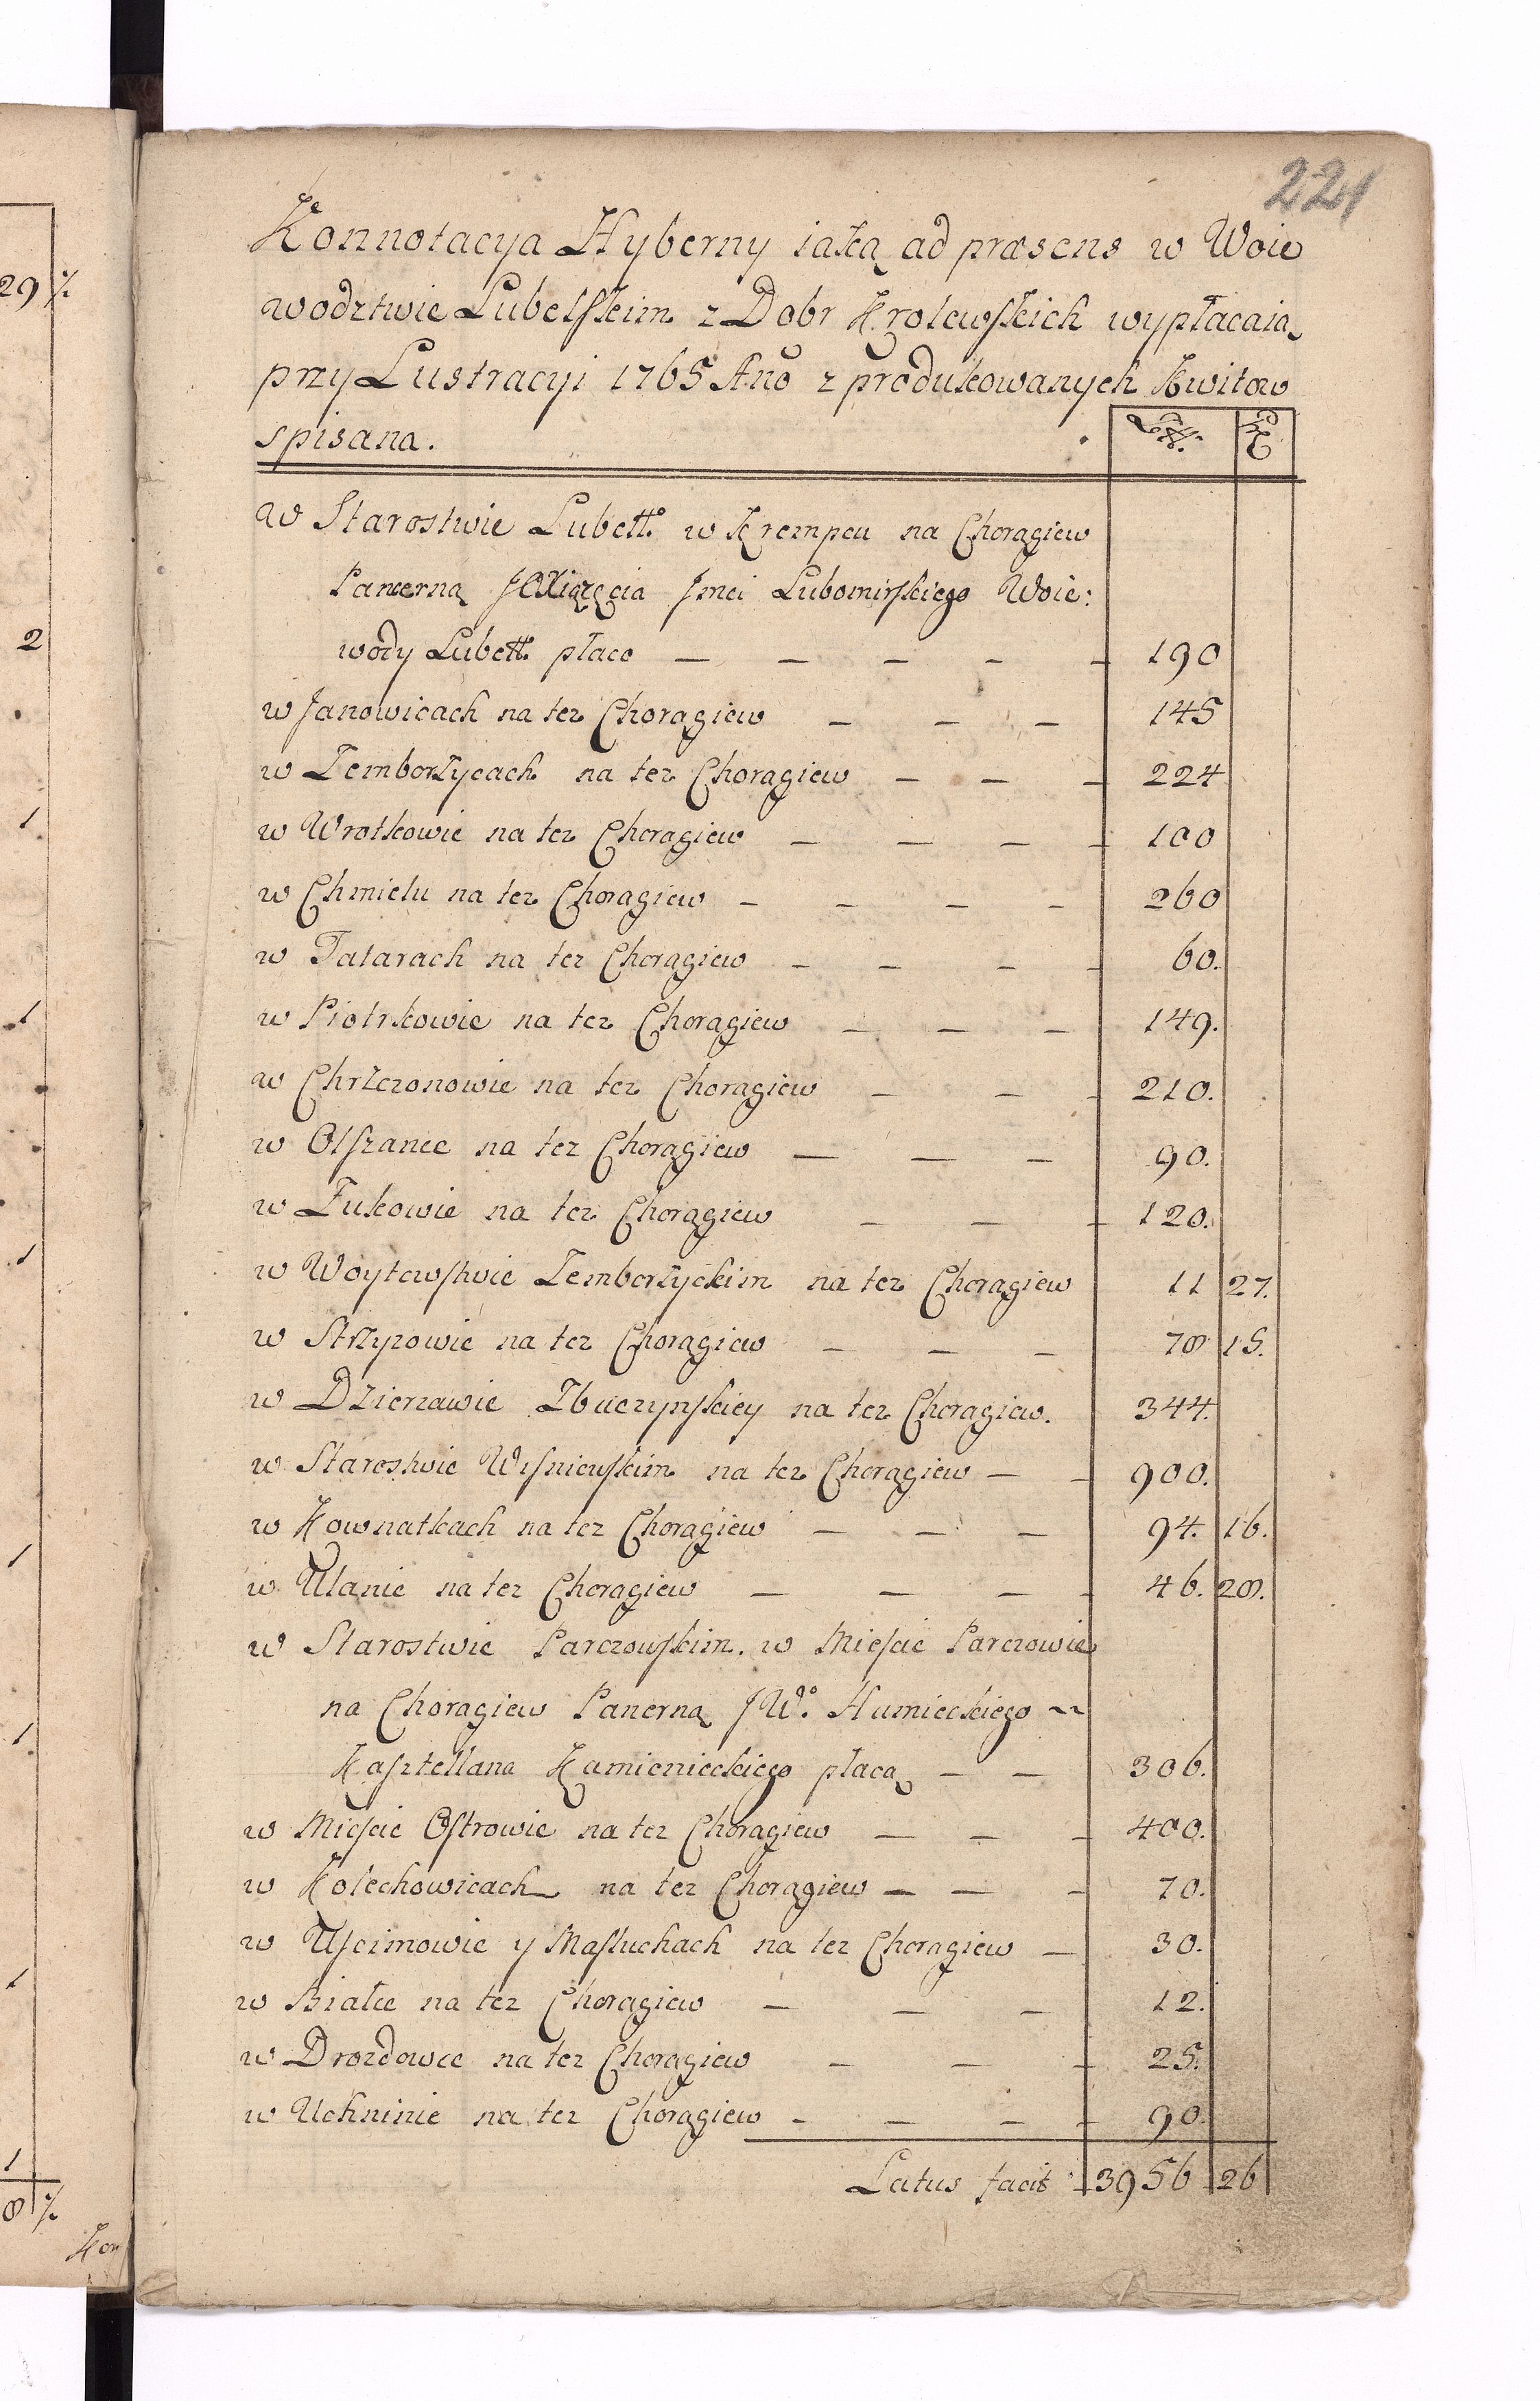 221
Konnotacya Hyberny iaką ad præsens w Woie
wodztwie Lubelskim z Dobr Krolewskich wypłacaią
przy Lustracyi 1765 Año z produkowanych Kwitow
spisana.
w Starostwie Lubell. w Krempcu na Chorągiew
Pancerną JOXiążęcia Jmci Lubomirskiego Woie:
wody Lubell. płaco — — — — — 190
w Janowicach na tez Chorągiew — — — 145
w Zemborzycach na tez Chorągiew — — — 224
w Wrotkowie na tez Chorągiew — — — — 100
w Chmielu na tez Chorągiew — — — — 260
w Tatarach na tez Chorągiew — — — — 60.
w Piotrkowie na tez Chorągiew — — — 149.
w Chrzczonowie na tez Chorągiew — — — 210.
w Olszance na tez Chorągiew — — — 90.
w Żukowie na tez Chorągiew — — — 120.
w Woytowstwie Zemborzyckim na tez Chorągiew 11 27.
w Strzyzowie na tez Chorągiew — — — 78 15.
w Dzierzawie Zbuczynskiey na tez Chorągiew. 344.
w Starostwie Wisniewskim na tez Chorągiew — — 900.
w Kownatkach na tez Chorągiew — — — 94. 16.
w Ulanie na tez Chorągiew — — — — 46. 28.
w Starostwie Parczowskim. w Miescie Parczowie
na Chorągiew Pancerną JW. Humieckiego
Kasztellana Kamienieckiego płacą — — 306.
w Miescie Ostrowie na tez Chorągiew — — — 400.
w Kolechowicach na tez Chorągiew — — — 70.
w Uscimowie y Masluchach na tez Chorągiew — 30.
w Białce na tez Chorągiew — — — 12.
w Drozdowce na tez Chorągiew — — — 25.
w Uchninie na tez Chorągiew — — — — 90.
Latus facit 3956 26
29 %
2
1
1
1
1
1
1
1
8 %
Kon